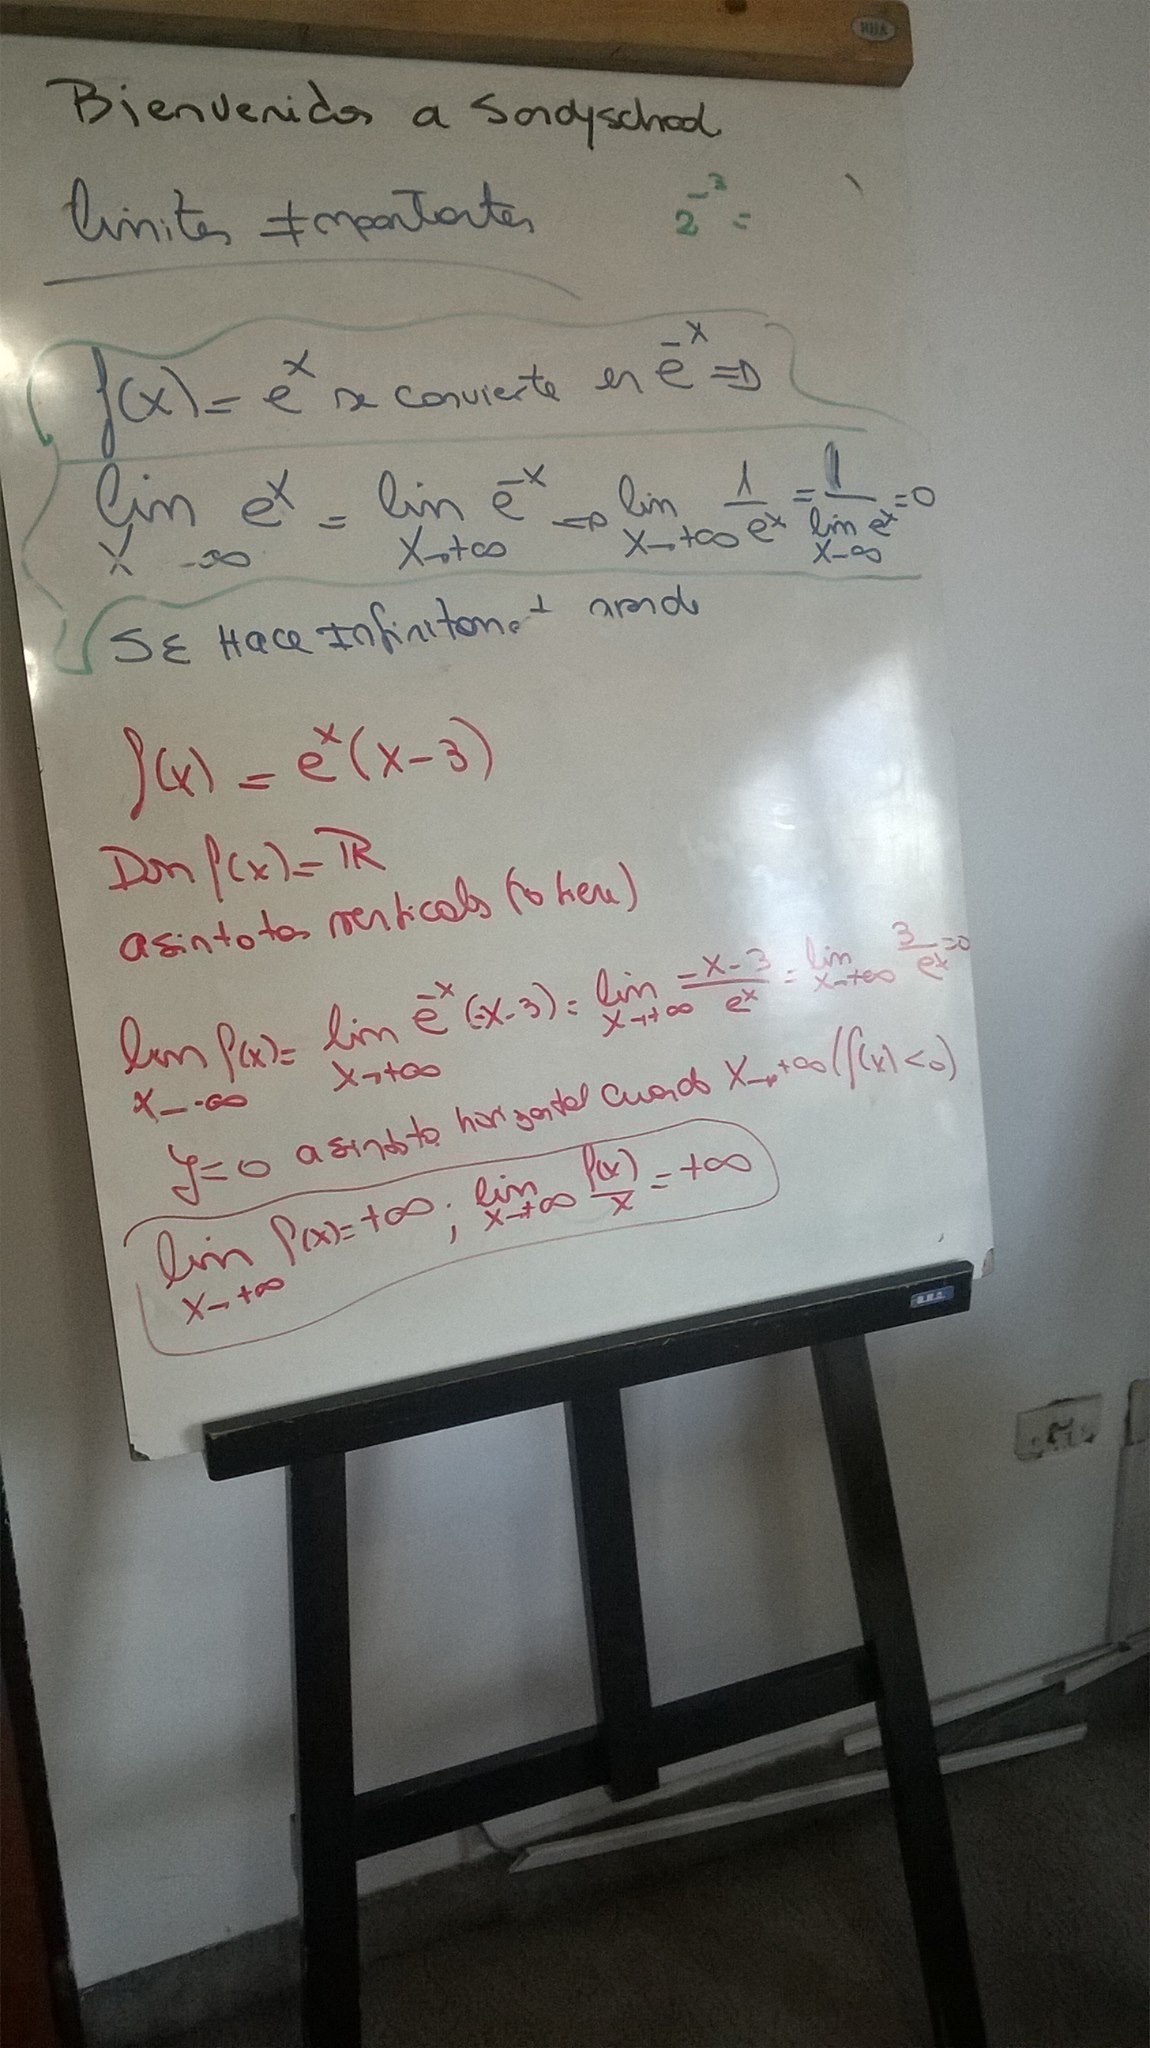 Bienvenidos a Sandyschool
limites Importantes 2⁻³ =
f(x) = eˣ se convierte en e⁻ˣ ⇒
lim x→-∞ eˣ = lim x→+∞ e⁻ˣ ⇒ lim x→+∞ 1/eˣ = 1/lim x→∞ eˣ = 0
SE HACE Infinitam.
f(x) = eˣ(x-3)
Dom f(x) = ℝ
asintotas verticales (no tiene)
lim x→-∞ f(x) = lim x→+∞ e⁻ˣ(-x-3) = lim x→+∞ -x-3/eˣ = lim x→+∞ 3/eˣ = 0
y=0 asintota horizontal cuando x→+∞ (f(x)<0)
lim x→+∞ f(x) = +∞ ; lim x→+∞ f(x)/x = +∞